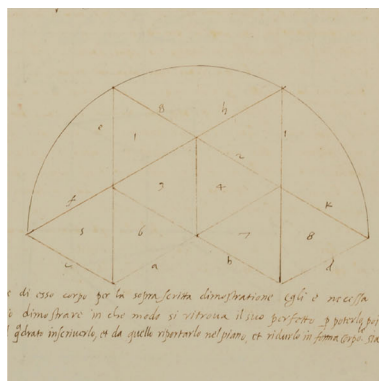 g h
e 1 i
2
f 3 4 k
5 6 7 8
c a b d
e di esso corpo per la sopra scritta dimostratione egli e necessa
dimostrare in che modo si ritrova il suo perfetto p poterlo poi
q̃drato inscriverlo, et da quello riportarlo nel piano, et ridurlo in forma corpo. sta